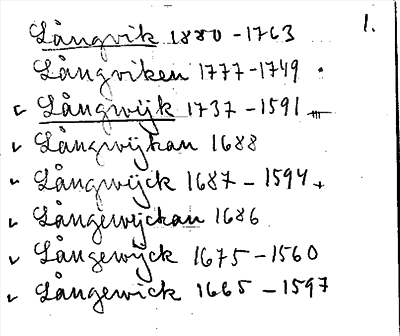 1.
Långvik 1880-1763
Långviken 1777-1749 .
Långwijk 1737-1591
Långwijkan 1688
Långwijck 1687-1594 +
Långewijckan 1686
Långewijck 1675-1560
Långewick 1665-1597